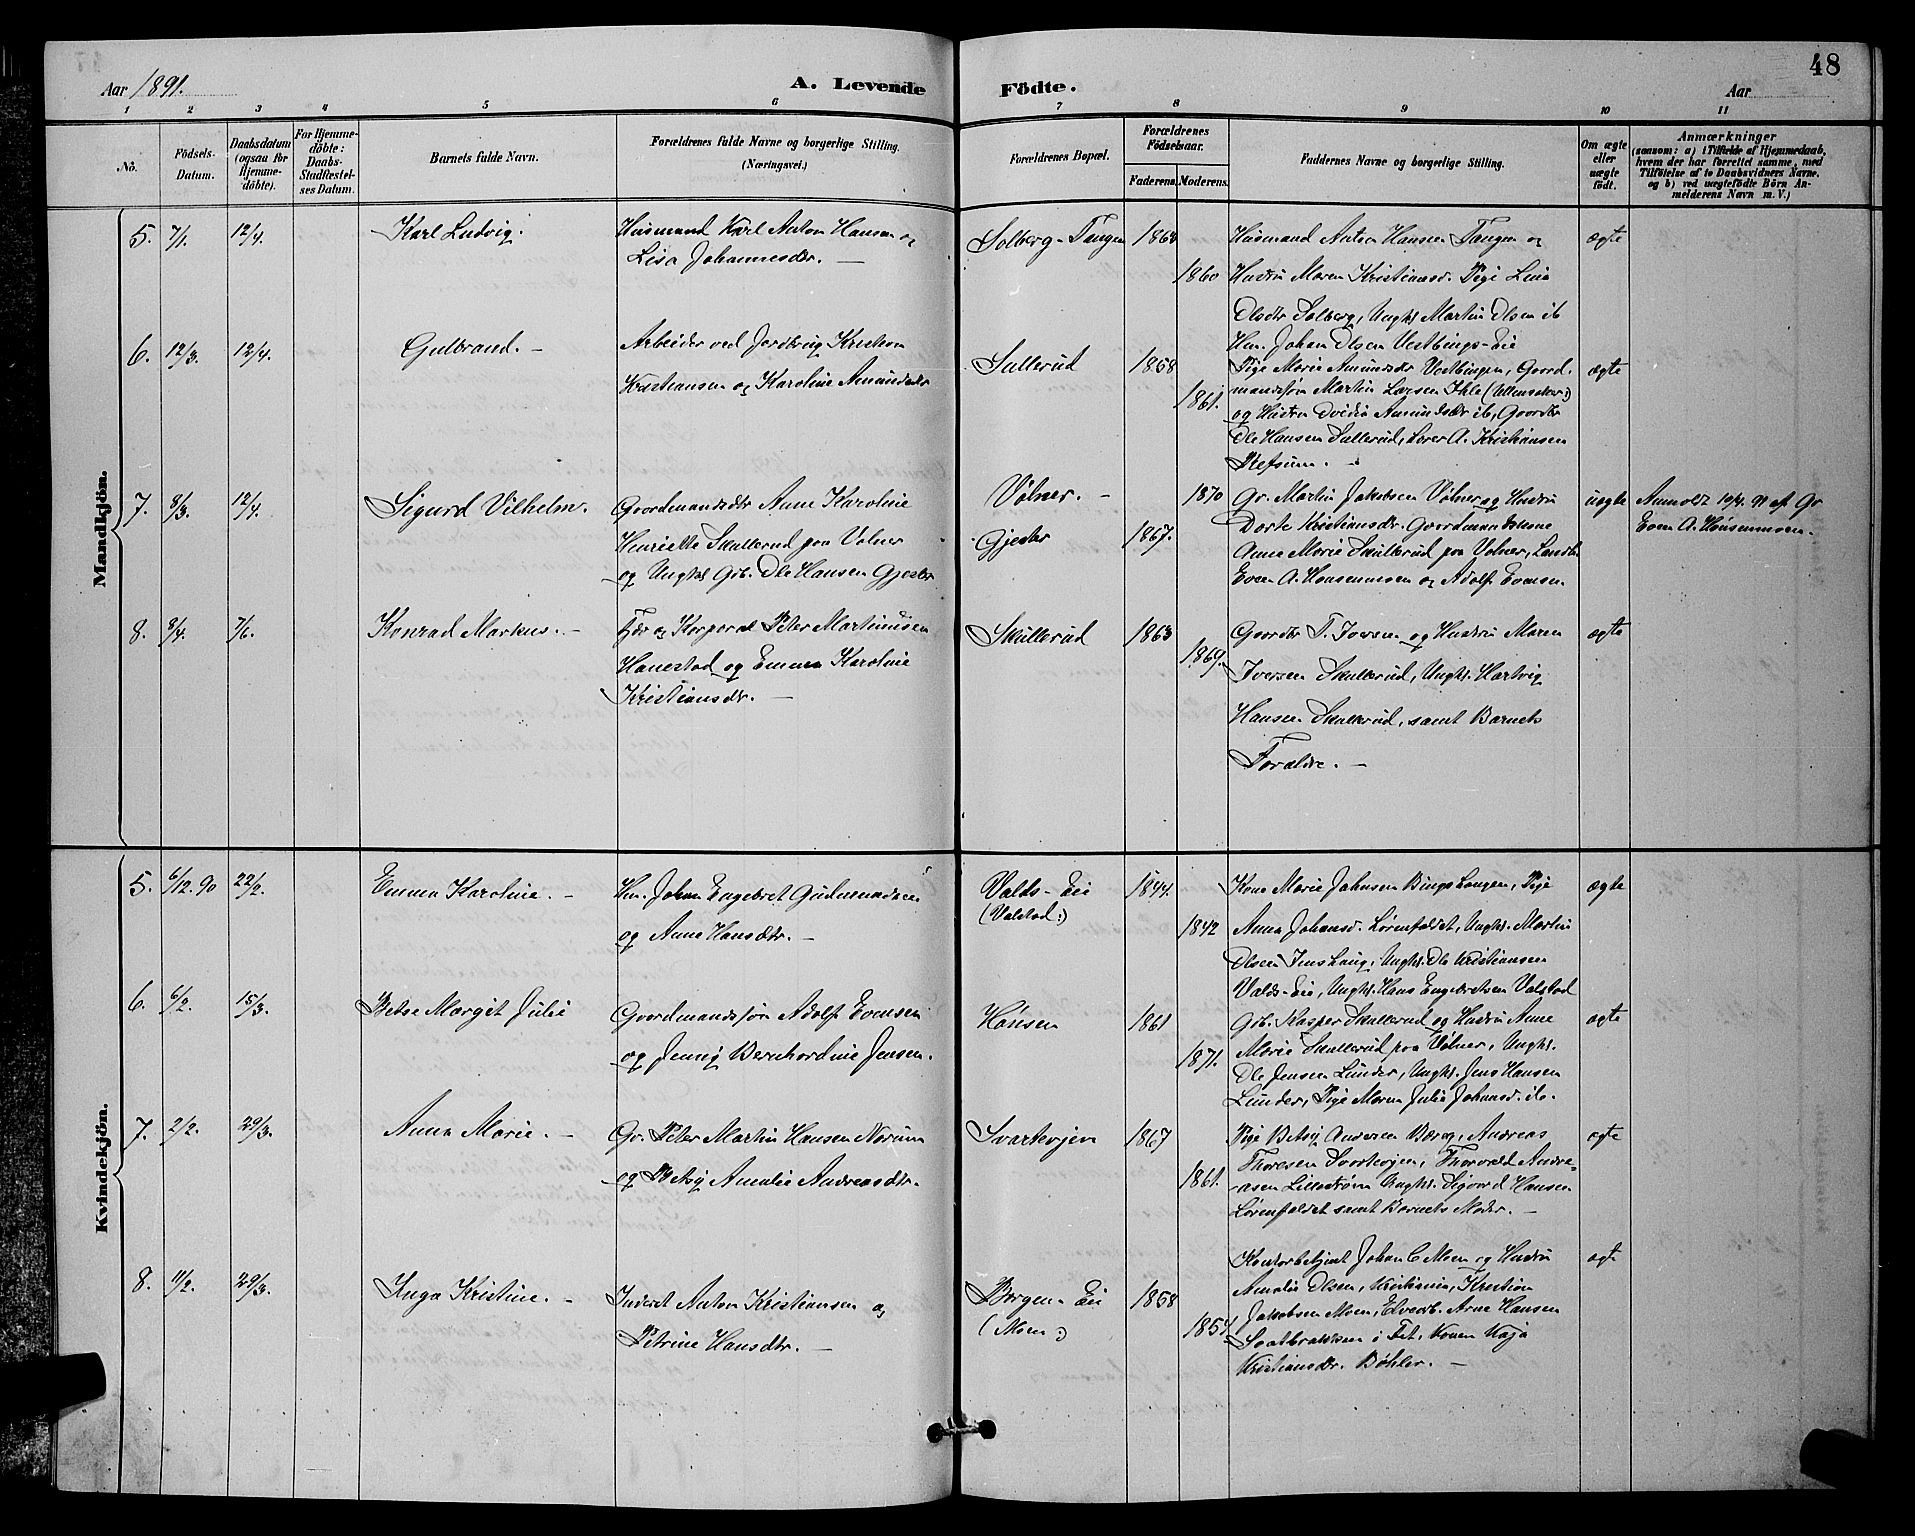 48
Aar 1891.
A. Levende Födte.
Aar
1 2 3 4 5 6 7 8 9 10 11
No.
Födsels-
Datum.
Daabsdatum
(ogsaa for
Hjemme-
döbte).
For Hjemme-
döbte:
Daabs-
Stadfæstel-
ses Datum.
Barnets fulde Navn.
Forældrenes fulde Navne og borgerlige Stilling.
(Næringsvei.)
Forældrenes Bopæl.
Forældrenes
Födselsaar.
Faderens. Moderens.
Faddernes Navne og borgerlige Stilling.
Om ægte
eller
uægte
födt.
Anmærkninger
(saasom: a) i Tilfælde af Hjemmedaab,
hvem der har forrettet samme, med
Tilföielse af to Daabsvidners Navne.
og b) ved uægtefödte Börn An-
melderens Navn m. V.)
Mandkjön.
5. 7/1. 12/4. Karl Ludvig.
Husmand Karl Anton Hansen og
Lisa Johannesdtr. —
Solberg-Tangen
1860
Husmand Anton Hansen Tangen og
Hustru Maren Kristiansd. Pige Lina
Olsdtr Solberg, Ungk. Martin Olsen ib
ægte
6. 12/3. 12/4. Gulbrand. —
Arbeider ved Kristian
Kristiansen og Karoline Amundsdtr
Sallerud
1858
1861.
Hm. Johan Olsen Vestbings-Eie
Pige Marie Amundsdtr Vestbingen, Gaard-
mandssøn Martin Larsen Ihle (Ullensaker:)
og Hustru Amundsdtr ib, Gaardbr
Ole Hansen Sallerud, Lærer A. Kristiansen
Refsum. —
ægte
7. 8/3. 12/4. Sigurd Vilhelm.
Gaardmandsdtr Anne Karoline
Henriette Skullerud paa Vølner
og Ungk. Gb. Ole Hansen Gjester
Vølner. —
Gjester
1870
1867.
Gr. Martin Jakobsen Vølner og Hustru
Dorte Kristiansdr. Gaardmandskone
Anne Marie Skullerud paa Vølner,
Even A. Hønsenmoen og Adolf Evensen.
uægte
Anmeldt 10/4. 91 af Gr
Even A. Hønsenmoen.
8. 8/4. 7/6. Konrad Markus. —
og Korporal Peter Martinusen
Hanestad og Emma Karoline
Kristiansdr. —
Skullerud
1863
1869.
Gaardbr T. Iversen og Hustru Maren
Iversen Skullerud, Ungk. Hartvig
Hansen Skullerud, samt Barnets
Forældre. —
ægte
Kvindekjön.
5. 6/12. 90 22/2. Emma Karoline. —
Hm. Johan Engebret Gudmundsen
og Anne Hansdtr. —
Valds-Eie
(Valstad:)
1844.
1842
Kone Marie Johnsen Bingslangen, Pige
Anna Johansd. Lørenfaldet, Ungk. Martin
Olsen Jenshaug, Ungk. Ole Kristiansen
Valds-Eie, Ungk. Hans Engebretsen Valstad
ægte
6. 6/2. 15/3. Betse Margit Julie
Gaardmandssøn Adolf Evensen
og Jenny Bernhardine Jensen.
Hønsen
1861
1871.
Gb. Kasper Skullerud og Hustru Anne
Marie Skullerud paa Vølner, Ungk.
Ole Jensen Lunder, Ungk. Jens Hansen
Lunder, Pige Maren Julie Johansd. ib.
ægte
7. 2/2. 29/3. Anna Marie. —
Gr. Peter Martin Hansen Norum
og Betsy Amalie Andreasdtr.
Svartevjen
1867
1861.
Pige Betsy Andersen Berg, Andreas
Thoresen Svartevjen, Thorvald Andre-
asen Lillestrøm Ungk. Sigvard Hansen
Lørenfaldet samt Barnets Moder. —
ægte
8. 11/2. 29/3. Inga Kristine. —
Inderst Anton Kristiansen og
Petrine Hansdtr. —
Borgen-Eie
(Moen:)
1858
Kontorbetjent Johan C. Moen og Hustru
Amalie Olsen, Kristiania, Kristian
Jakobsen Moen, Elvearb. Arne Hansen
i Fet, Konen Kaja
Kristiansdr. Bøhler. —
ægte